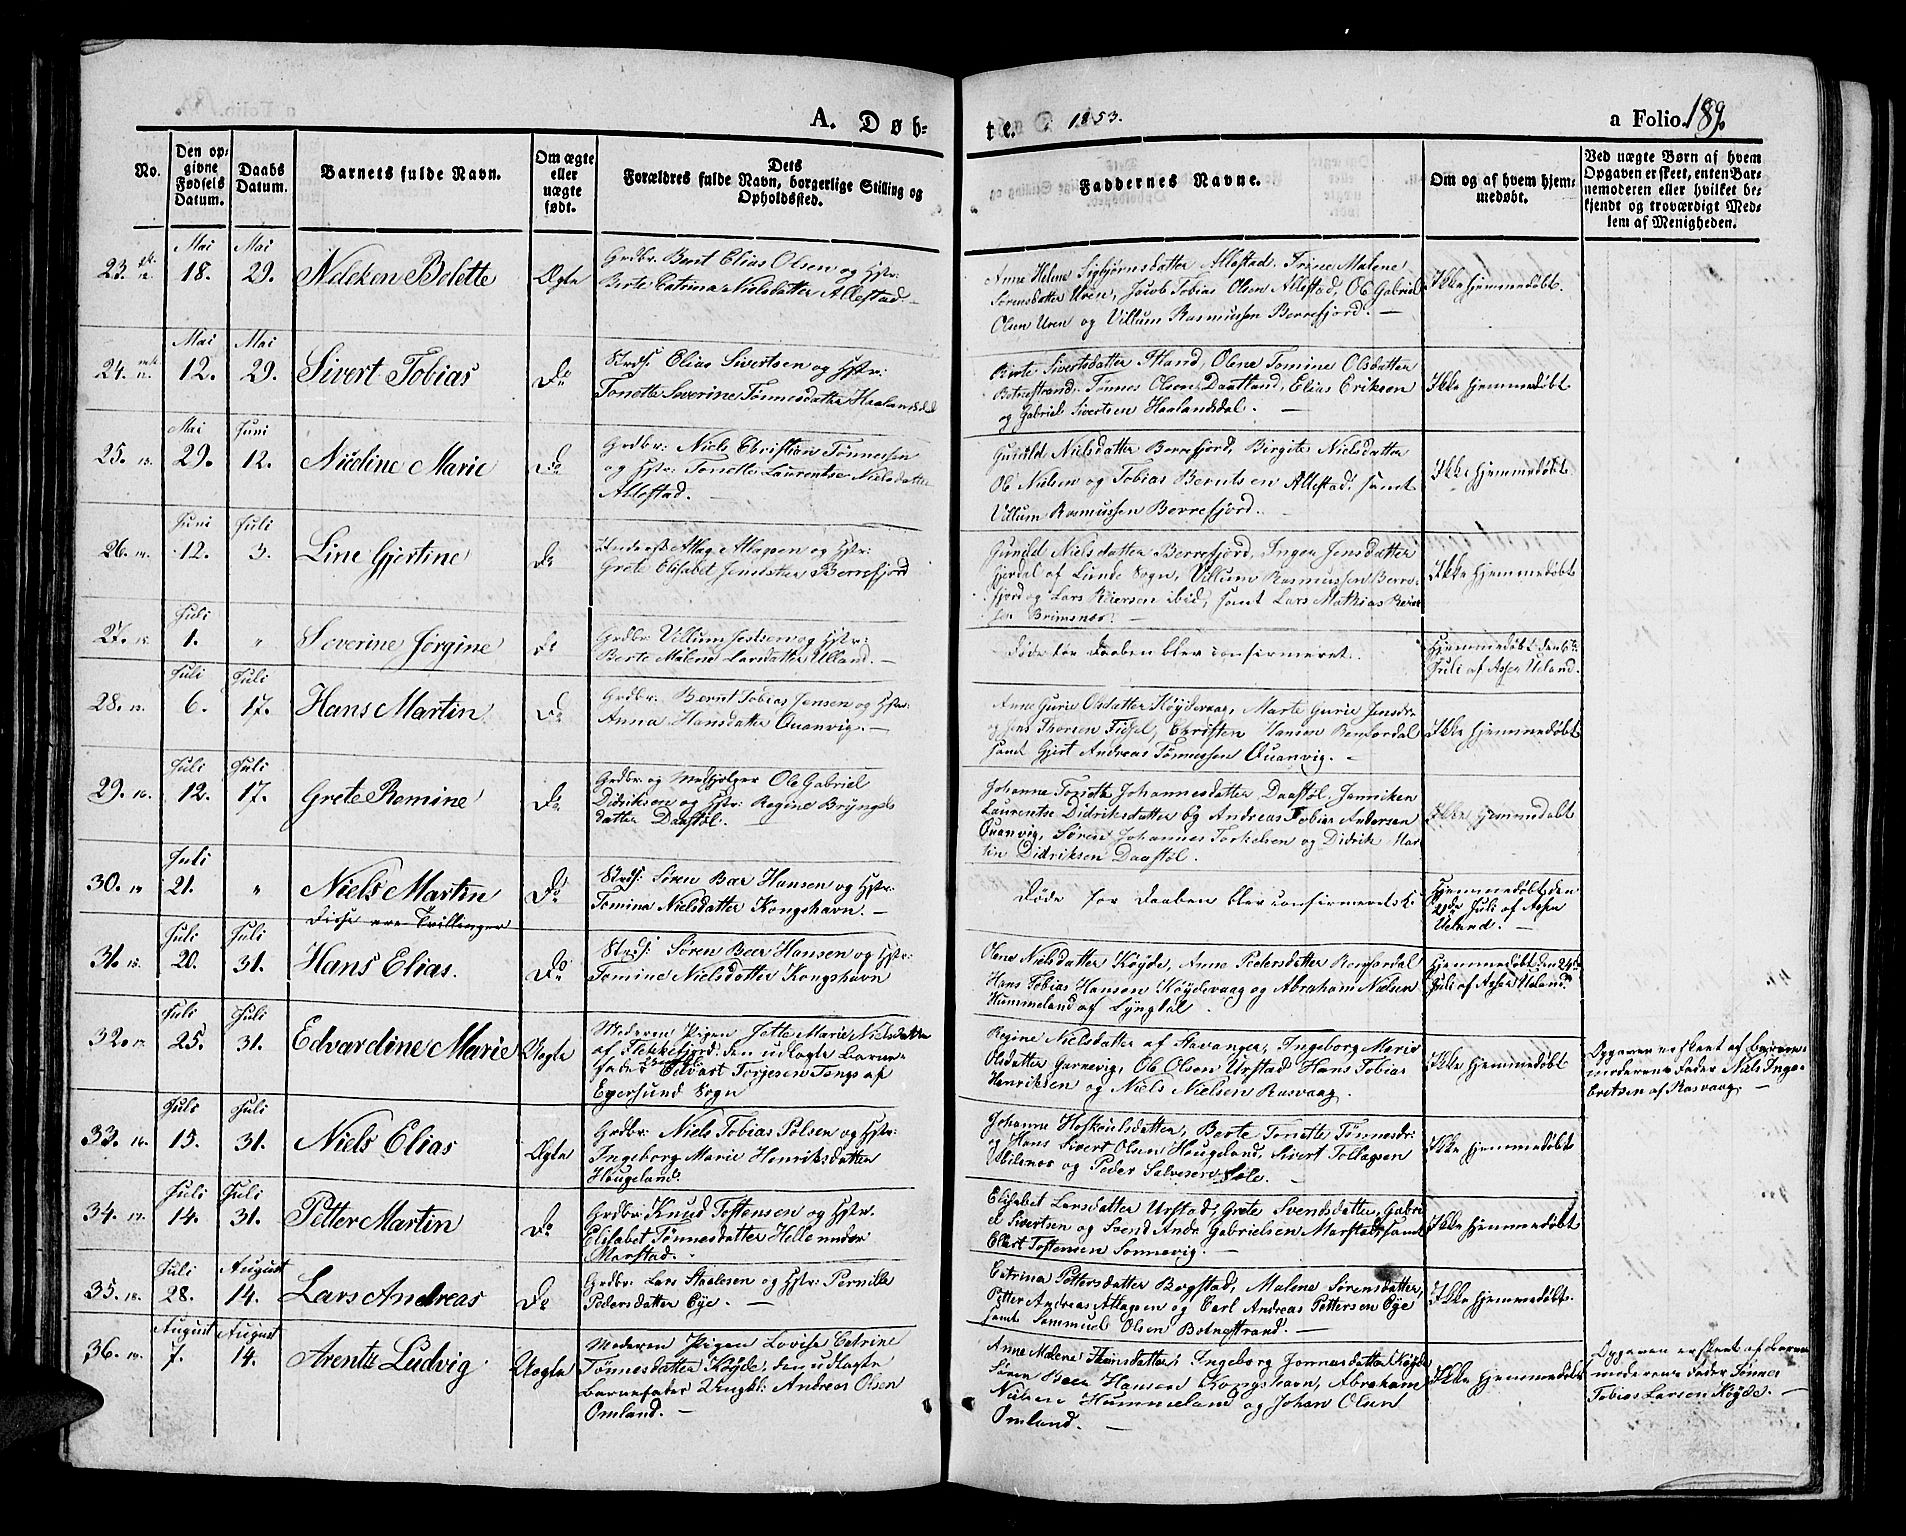 A. Døb-
te. 1853.
a Folio. 189.
No.
Den op-
givne
Fødsels
Datum.
Daabs
Datum.
Barnets fulde Navn.
Om ægte
eller
uægte
født.
Dets
Forældres fulde Navn, borgerlige Stilling og
Opholdssted.
Faddernes Navne.
Om og af hvem hjem-
medøbt.
Ved uægte Børn af hvem
Opgaven er skeet, enten Bar-
nemoderen eller hvilket be-
kjendt og troværdigt Med-
lem af Menigheden.
23.
Mai
18.
Mai
29.
Neleken Bolette
Ægte
Grdbr. Bent Elias Olsen og Hstr:
Berte Catrina Nielsdatter Allestad.—
Anne Helene Sigbjørnsdatter Allestad, Trine Malene
Sørensdatter Uren, Jacob Tobias Olsen Allestad, Ole Gabriel
Olsen Uren og Villum Rasmussen Berrefjord.—
Ikke hjemmedøbt.
24.
Mai
12.
Mai
29.
Sivert Tobias
Do
Strds: Elias Sivertsen og Hstr:
Tonette Severine Tønnesdatter Haalandsdal
Berte Sivertsdatter Strand, Olene Tomine Olsdatter
Botnestrand, Tønnes Olsen Daatland, Elias Eriksen
og Gabriel Sivertsen Haalandsdal.—
Ikke hjemmedøbt.
25.
Mai
29.
Juni
12.
Nicoline Marie
Do
Grdbr: Niels Christian Tønnesen
og Hstr: Tonette Laurentse Nielsdatter
Allestad.—
Gunild Nielsdatter Berrefjord, Birgite Nielsdatter
Ole Nielsen og Tobias Berntsen Allestad, samt
Villum Rasmussen Berrefjord.—
Ikke hjemmedøbt
26.
Juni
12.
Juli
3.
Line Gjertine
Do
Atlag Atlagsen og Hstr:
Grete Elisabet Jensdatter Berrefjord
Gunild Nielsdatter Berrefjord, Inger Jensdatter
Hjordal af Lunde Sogn, Villum Rasmussen Berre-
fjord og Lars Reiersen ibid, samt Lars Mathias Reier-
sen Brimsnes.—
Ikke hjemmedøbt
27.
Juli
1.
"
Severine Jørgine
Do
Grdbr: Villum Jostsen og Hstr:
Berte Malene Larsdatter Ulland.—
Døde før Daaben blev confirmeret.
Hjemmedøbt den 6te
Juli af Asser Ueland.
28.
Juli
6.
Juli
17.
Hans Martin
Do
Grdbr: Bernt Tobias Jensen og Hstr:
Anna Hansdatter Quanvig.—
Anne Gurie Olsdatter Røydevaag, Marte Gurie Jensdr
og Jens Thorsen Fidsel, Christen Hansen Remsordal
samt Gjert Andreas Tønnessen Quanvig.—
Ikke hjemmedøbt
29.
Juli
12.
Juli
17.
Grete Romine
Do
Grdbr: og Medhjelper Ole Gabriel
Didriksen og Hstr: Regine Bryngels
datter Daastøl.
Johanne Tonette Johannesdatter Daastøl, Janniken
Laurentse Didriksdatter og Andreas Tobias Andersen
Quanvig, Søren Johannes Torkelsen og Didrik Mar-
tin Didriksen Daastøl.
Ikke hjemmedøbt
30.
Juli
21.
"
Niels Martin
Do
Strds: Søren Beer Hansen og Hstr:
Tomina Nielsdatter Kongshavn.—
Døde før Daaben blev confirmeret
Hjemmedøbt den
21de Juli af Asser
Ueland.—
Disse ere Tvillinger
31.
Juli
20.
Juli
31.
Hans Elias.
Do
Strds: Søren Beer Hansen og Hstr:
Tomine Nielsdatter Kongshavn
Olene Nielsdatter Røyde, Anne Pedersdatter Remsordal
Hans Tobias Hansen Røydevaag og Abraham Nielsen
Hummeland af Lyngdal.
Hjemmedøbt den 24de
Juli af Asser Ueland.
32.
Juli
25.
Juli
31.
Edvardine Marie
Uægte
Moderen Pigen Jette Marie Nielsdatter
af Flekkefjord, den udlagte Barne-
fader Edvart Torjesen Tengs af
Egersund Sogn
Regine Nielsdatter af Stavanger, Ingeborg Marie
Olsdatter Garnevig, Ole Olsen Urstad Hans Tobias
Henriksen og Niels Nielsen Rasvaag.
Ikke hjemmedøbt
Opgaven er skeet af Barne-
moderens Fader Niels Inge-
bretsen af Rasvaag.
33.
Juli
15.
Juli
31.
Niels Elias
Ægte
Grdbr: Niels Tobias Pålsen og Hstr:
Ingeborg Marie Henriksdatter
Hougeland.
Johanne Hoskouldsdatter, Berte Tonette Tønnesdr:
og Hans Sivert Olsen Hougeland, Sivert Tollagsen
Ubilsnes og Peder Salvesen Søle.—
Ikke hjemmedøbt
34.
Juli
14.
Juli
31.
Petter Martin
Do
Grdbr: Knud Tostensen og Hstr.
Elisabet Tønnesdatter Helle under
Marstad.
Elisabet Larsdatter Urstad, Grete Svendsdatter, Gabri-
el Sivertsen og Svend Andr. Gabrielsen Marstad, samt
Ellert Tostensen Sonnevig.—
Ikke hjemmedøbt
35.
Juli
28.
August
14.
Lars Andreas
Do
Grdbr: Lars Staalesen og Hstr: Pernille
Pedersdatter Eye.—
Catrina Pettersdatter Bogstad, Malene Sørensdatter,
Petter Andreas Atlagsen og Carl Andreas Pettersen Eye
samt Sammuel Olsen Botnestrand.—
Ikke hjemmedøbt.
36.
August
7.
August
14.
Arent Ludvig
Uægte
Moderen Pigen Lovise Catrine
Tønnesdatter Røyde, den udlagte
Barnefader Ungkl: Andreas Olsen
Omland.—
Anne Malene Steinsdatter, Ingeborg Jonnasdatter Røyde
Søren Beer Hansen Kongshavn, Abraham
Nielsen Hummeland og Johan Olsen
Omland.—
Ikke hjemmedøbt
Opgaven er skeet af Barne-
moderens Fader Tønnes
Tobias Larsen Røyde.—